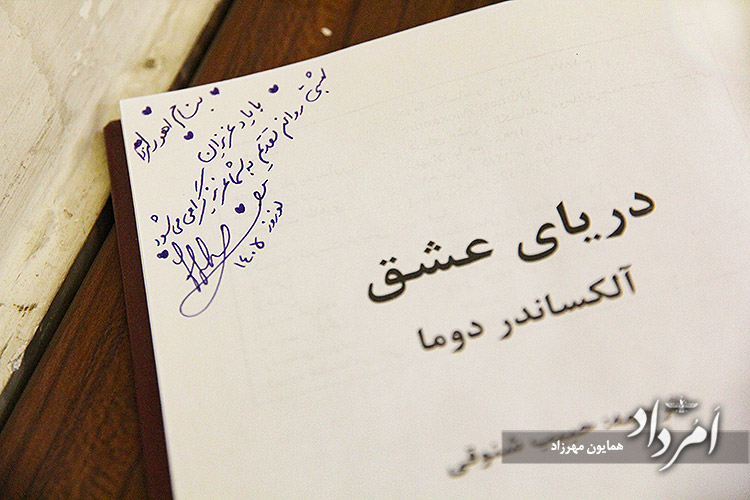 بنام اهورامزدا
با یاد عزیزان
بهشتی روانم تقدیم به شما عزیز گرامی می‌شود
نوروز ۱۴۰۵
دریای عشق
آلکساندر دوما
حبیب شنوقی
اَمُرداد
همایون مهرزاد